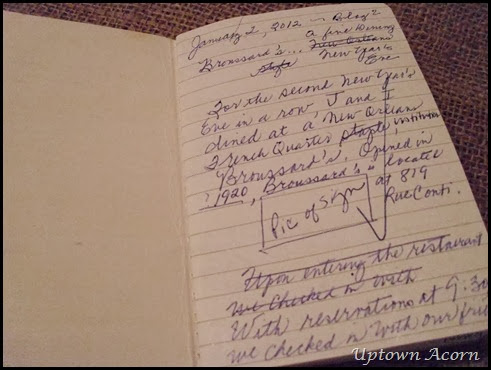 January 2, 2012 ~ Blog 2
a fine Dining
Broussard's... New Orleans
Style New Year's
Eve
For the second New Year's
Eve in a row, J and I
dined at a New Orleans
French Quarter staple, institution,
Broussard's. Opened in
1920, Broussard's is located
at 819
Rue Conti.
Pic of Sign
Upon entering the restaurant
we checked in with
With reservations at 9:30
we checked in with our
Uptown Acorn